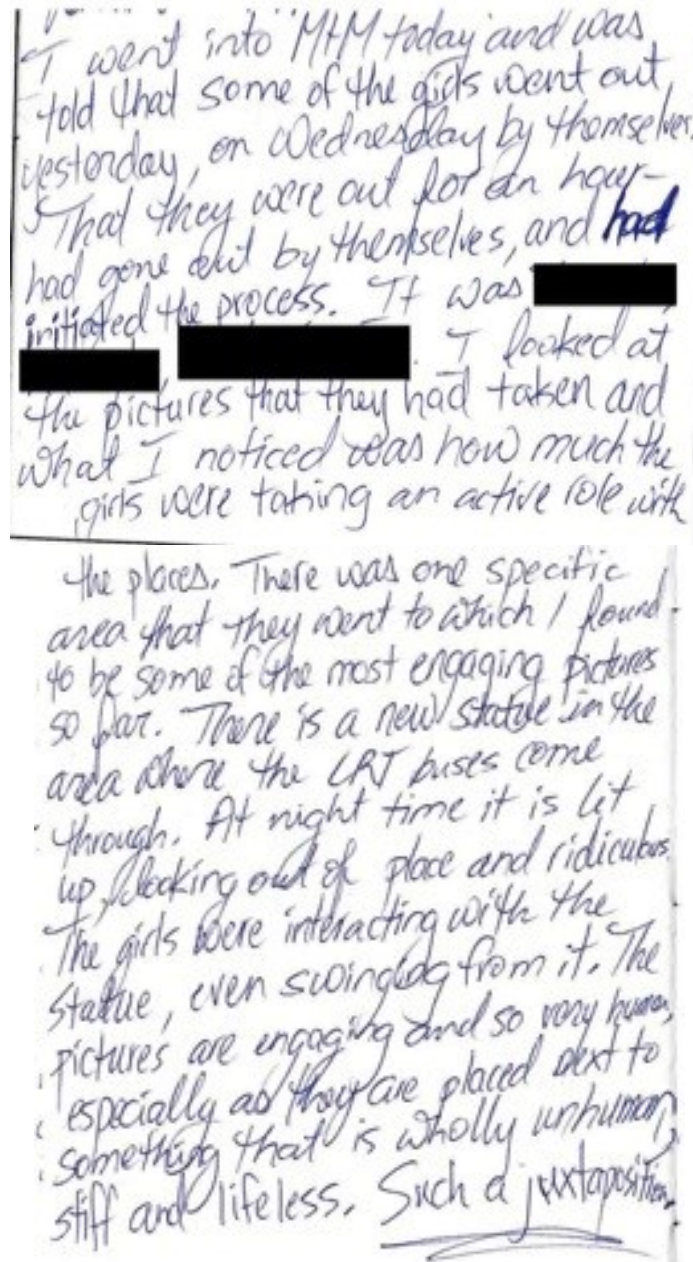 I went into MtM today and was
told that some of the girls went out
yesterday, on Wednesday by themselves.
That they were out for an hour-
had gone out by themselves, and had
initiated the process. It was
, . I looked at
the pictures that they had taken and
what I noticed was how much the
girls were taking an active role with
the places. There was one specific
area that they went to which I found
to be some of the most engaging pictures
so far. There is a new statue in the
area where the LRT buses come
through. At night time it is lit
up, looking out of place and ridiculous.
The girls were interacting with the
statue, even swinging from it. The
pictures are engaging and so very human,
especially as they are placed next to
something that is wholly unhuman,
stiff and lifeless. Such a juxtaposition.